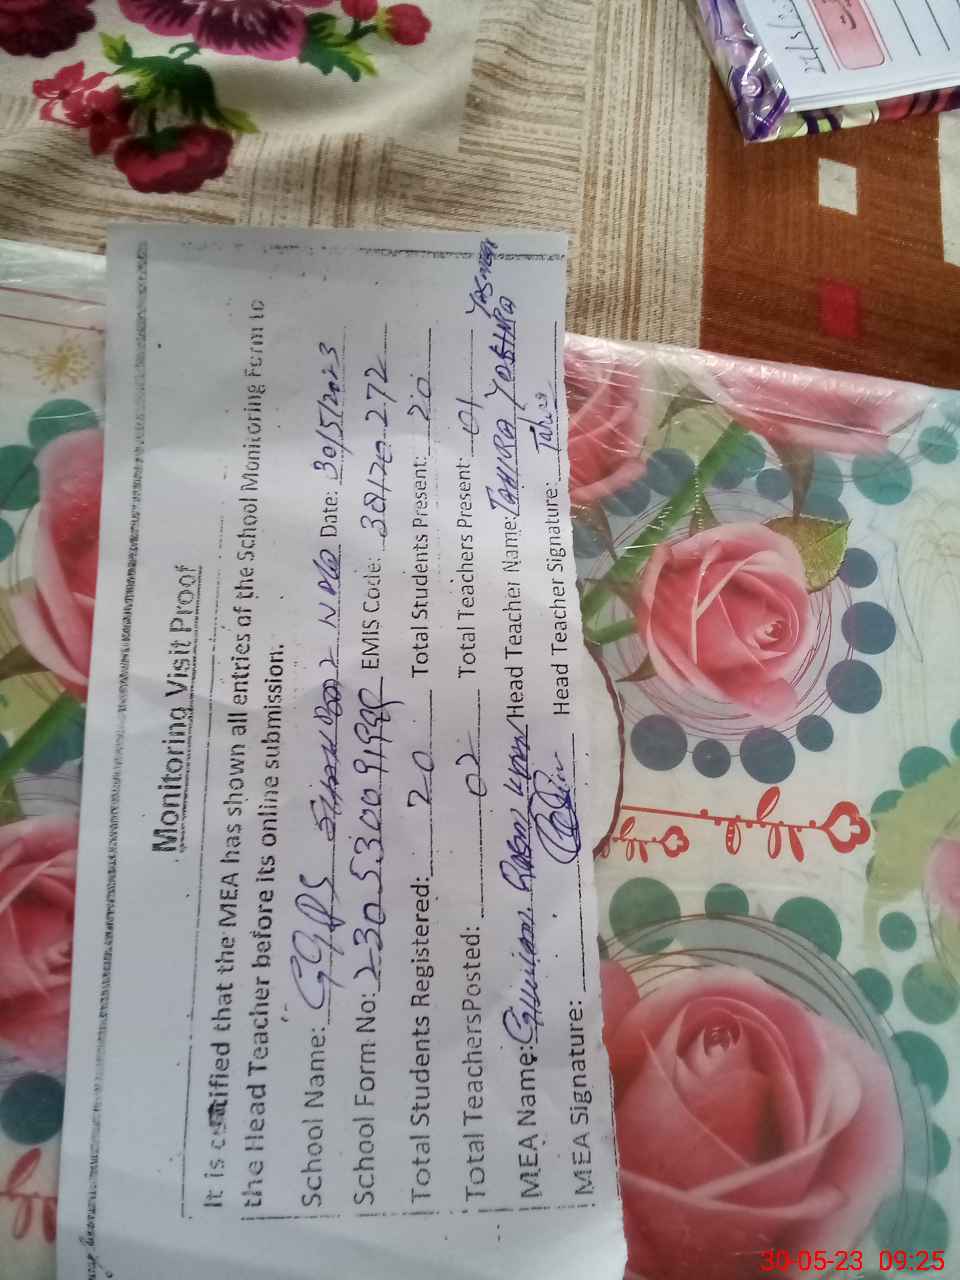 Monitoring Visit Proof
It is certified that the MEA has shown all entries of the School Monitoring Form to
the Head Teacher before its online submission.
School Name: GGPS Date: 30/5/2023
School Form No: EMIS Code: 38170272
Total Students Registered: 20 Total Students Present: 20
Total Teachers Posted: 02 Total Teachers Present: 01
MEA Name: Head Teacher Name: TAHIRA
MEA Signature: Head Teacher Signature: Tahira
30-05-23 09:25